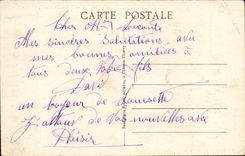 CARTE POSTALE
Cher Mr Lecomte
Mes sincères Salutations avec
mes bonnes amitiées à
tous deux Votre fils
un bonjour de Louisette
J'attend de Vos nouvelles avec
Plaisir